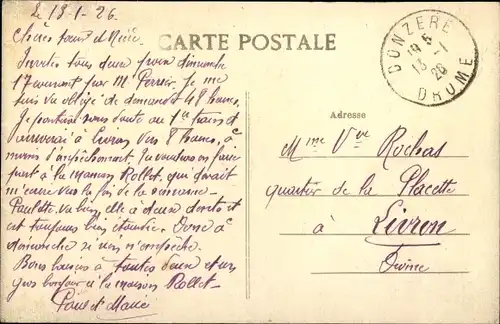 Le 13-1-26.
Chères sœur et Nièce
Invités tous deux pour dimanche
17 courant par Mr Perrier. Je me
suis vu obligé de demander 48 heures,
Je partirai sans doute au 1er train et
arriverai à Livron vers 8 heures, à
moins d'empêchement. Tu voudras en faire
part à la maison Rollet, qui devait
m'écrire vers la fin de la semaine
Paulette va bien, elle a deux dents et
est toujours bien Donc à
dimanche si rien n'empêche.
Bons baisers à toutes deux et un
gros bonjour à la maison Rollet
Paul et Marie
CARTE POSTALE
DONZERE
19 5
13 -1
26
DROME
Adresse
Mme Vve Rochas
quartier de la Placette
à Livron
Drôme